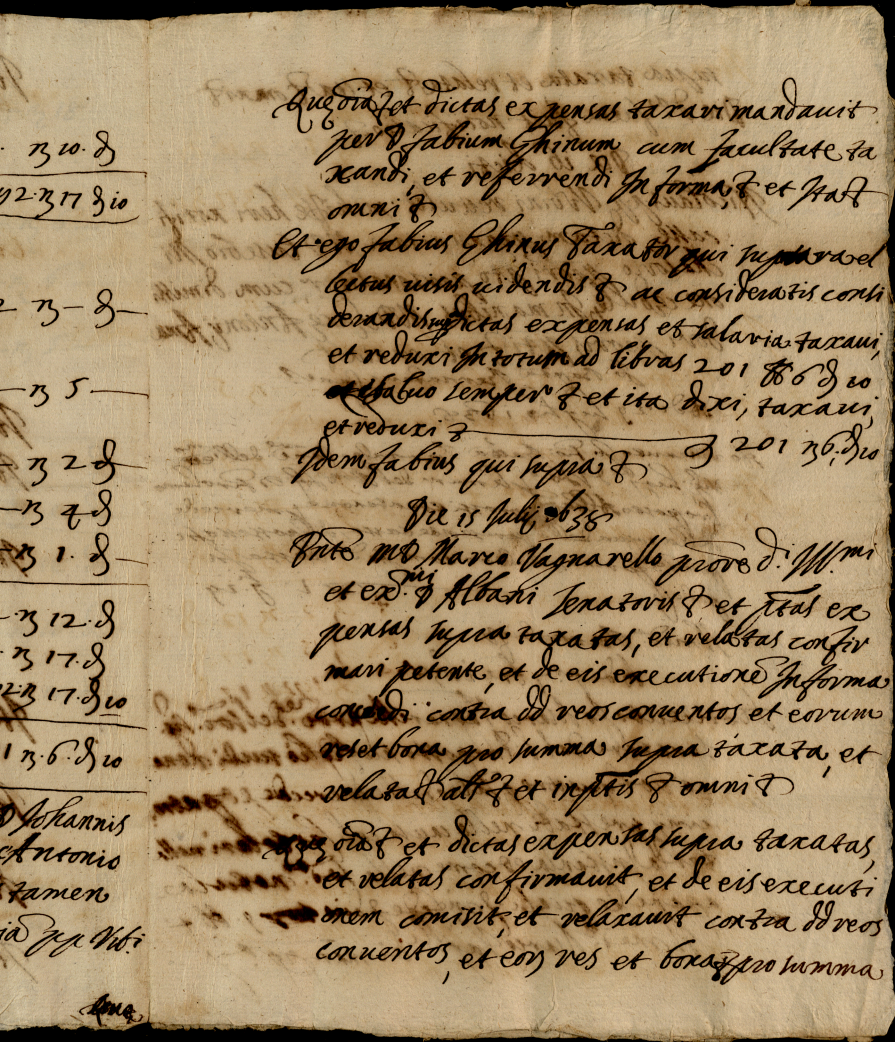 . ß 10. d
92. ß 17 d 10
2 — ß — d —
— ß 5 —
— ß 2 d —
— ß 4 d
— ß 1. d —
— ß 12. d
ß 17. d
92. ß 17. d 10
1 ß. 6. d 10
D Johannis
Antonio
tamen
pp Viti
Quę
Quę oia et dictas expensas taxari mandauit
per D fabium Ghinum cum facultate ta
xandi, et referrendi In forma, et Ita
omni
Et ego fabius Ghinus Taxator qui supra el
lectus uisis uidendis ac consideratis consi
derandis dictas expensas et salaria taxaui,
et reduxi In totum ad libras 201 ß 6 d 10
saluo semper et ita dixi, taxaui,
et reduxi — 201 ß 6. d 10
Idem fabius qui supra
Die 15 Julij 1638
Pnte m D Marco Vagnarello prore d. Ill.mi
et ex.mi D Albani senatoris et ptas ex
pensas supra taxatas, et relatas confir
mari petente, et de eis executione In forma
concedi contra dd reos conuentos et eorum
res et bona pro summa supra taxata, et
relata alr et in ptis omni
Quę oia et dictas expensas supra taxatas,
et relatas confirmauit, et de eis executi
onem comisit, et relaxauit contra dd reos
conuentos, et eor res et bona pro summa